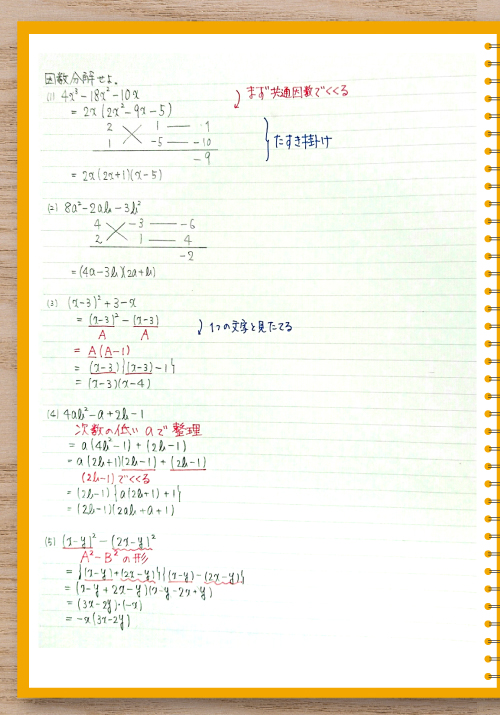 因数分解せよ。
(1) 4x³-18x²-10x
まず共通因数でくくる
= 2x(2x²-9x-5)
2 1 — 1
1 -5 — -10
たすき掛け
-9
= 2x(2x+1)(x-5)
(2) 8a²-2ab-3b²
4 -3 — -6
2 1 — 4
-2
= (4a-3b)(2a+b)
(3) (x-3)²+3-x
= (x-3)²-(x-3)
1つの文字と見たてる
A A
= A(A-1)
= (x-3){(x-3)-1}
= (x-3)(x-4)
(4) 4ab²-a+2b-1
次数の低いaで整理
= a(4b²-1)+(2b-1)
= a(2b+1)(2b-1)+(2b-1)
(2b-1)でくくる
= (2b-1){a(2b+1)+1}
= (2b-1)(2ab+a+1)
(5) (x-y)²-(2x-y)²
A²-B²の形
= {(x-y)+(2x-y)}{(x-y)-(2x-y)}
= (x-y+2x-y)(x-y-2x+y)
= (3x-2y)·(-x)
= -x(3x-2y)